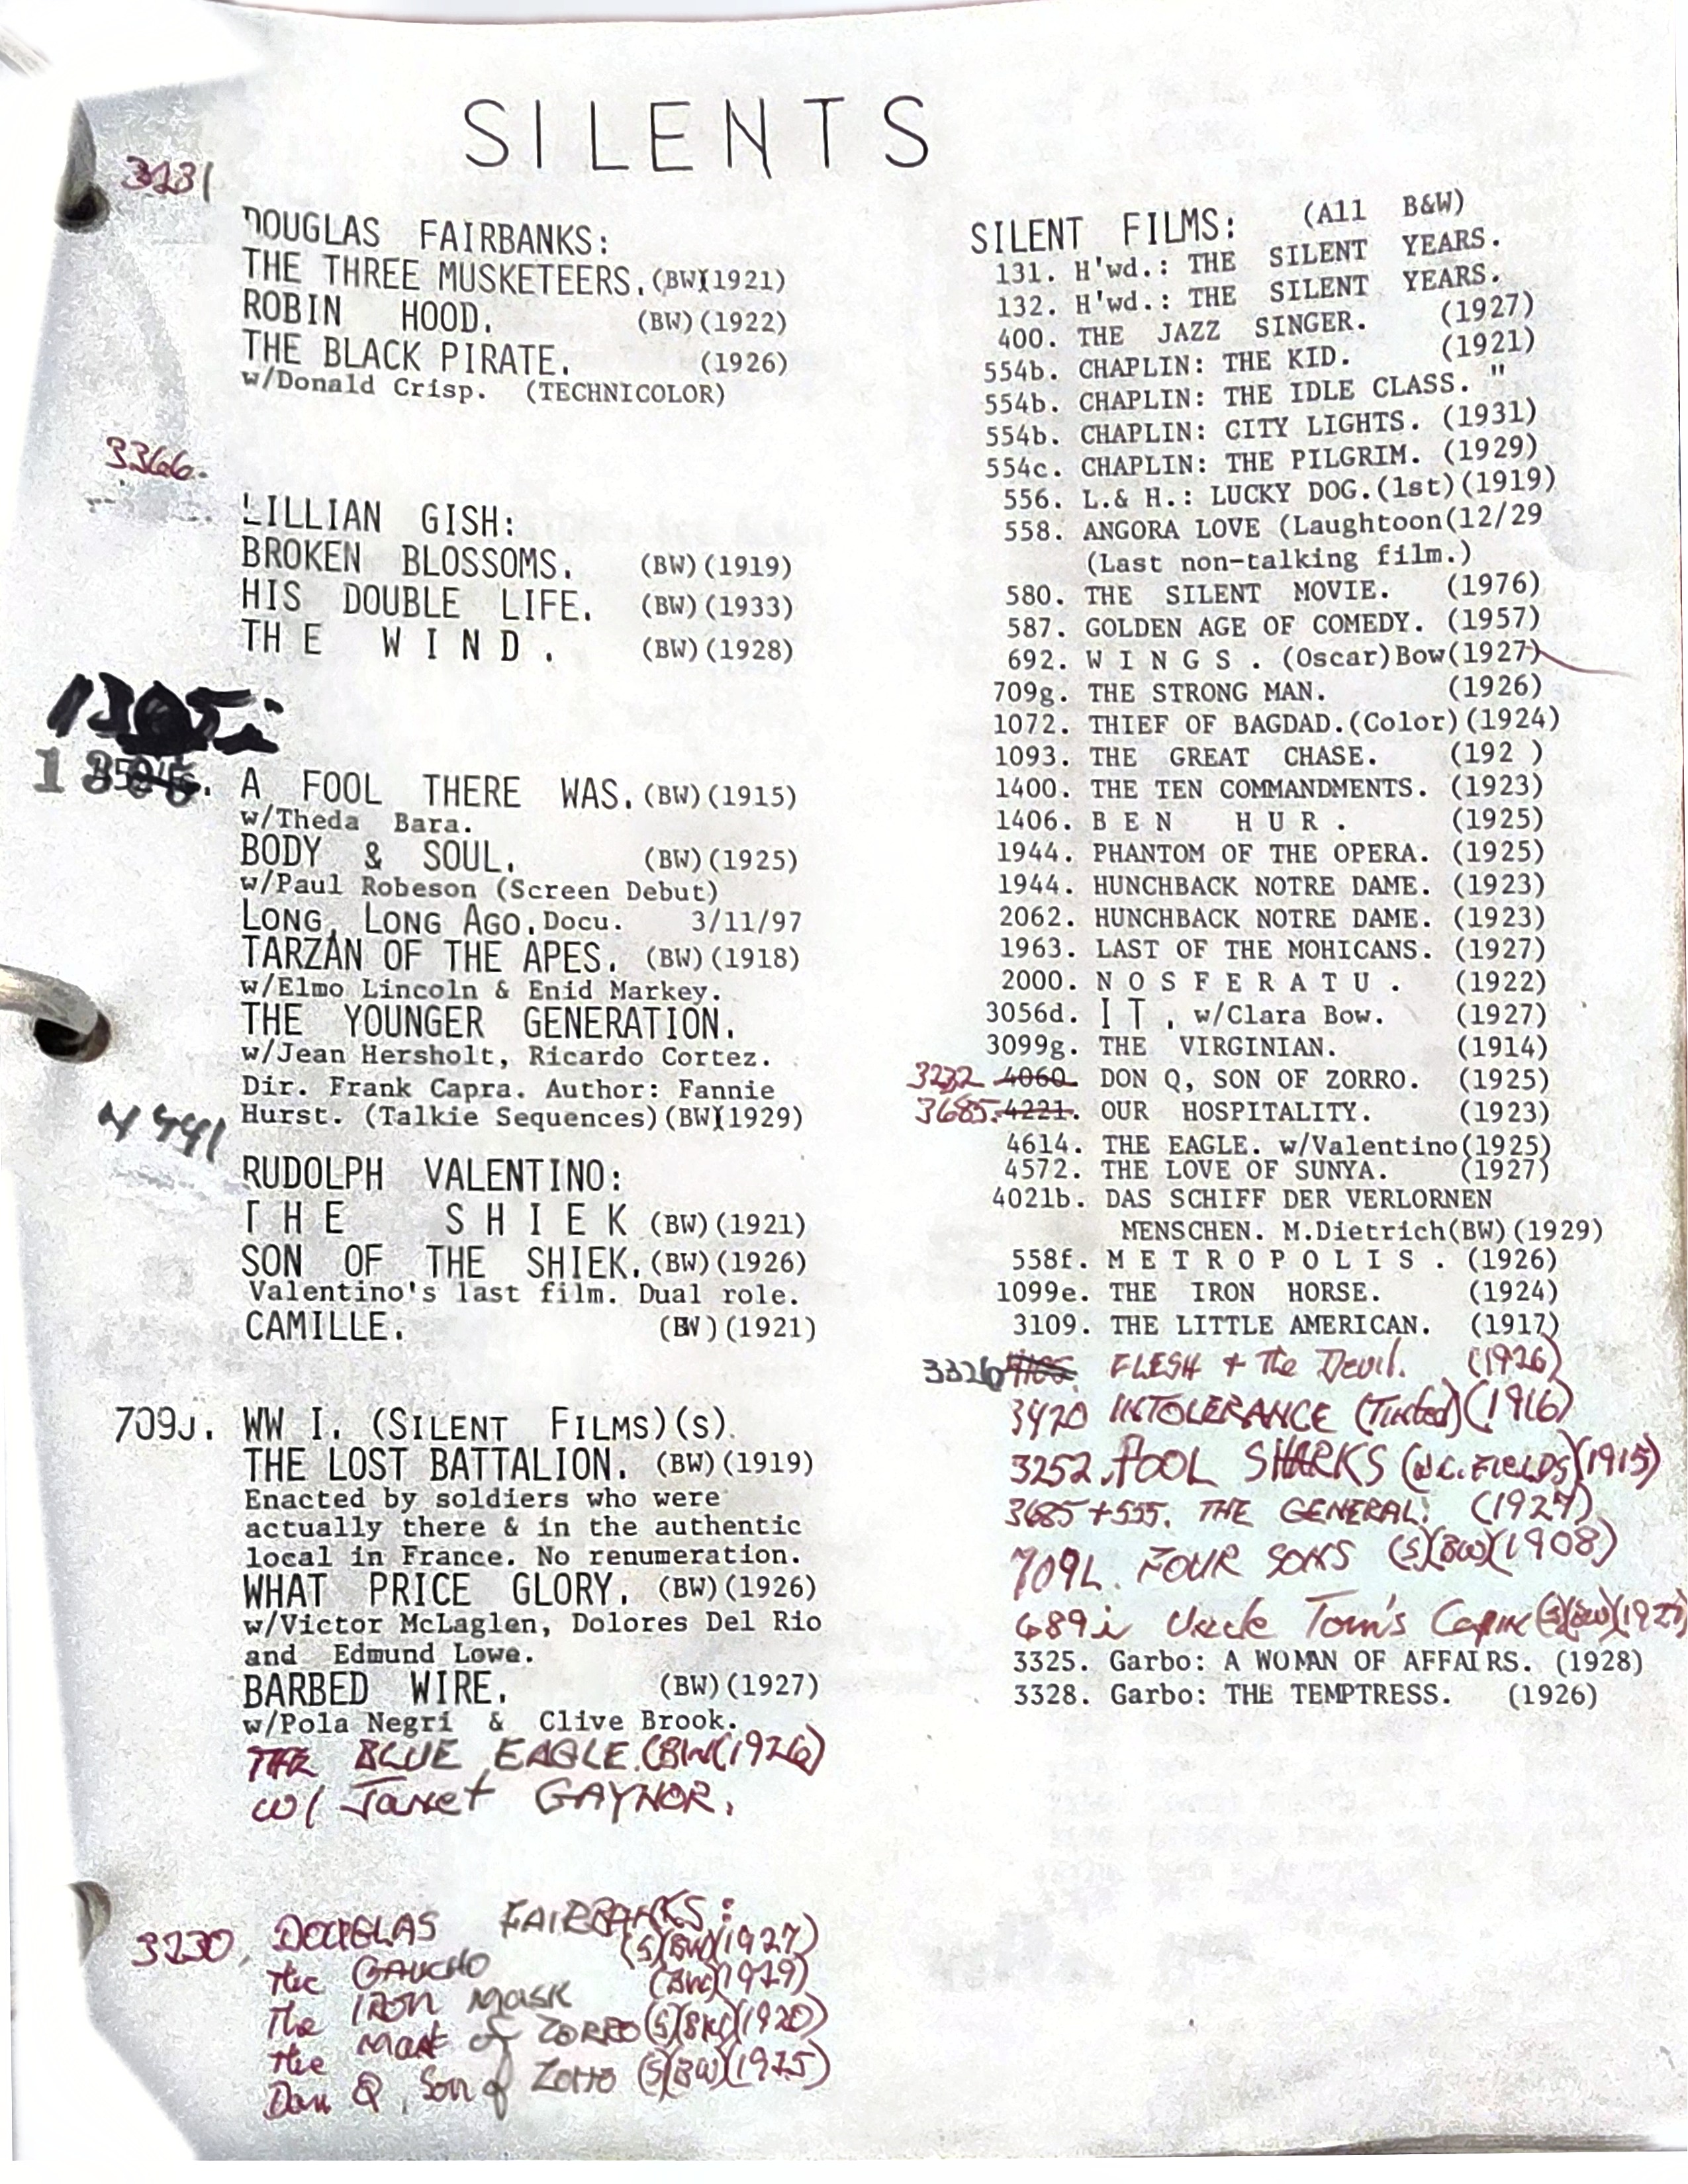 SILENTS
3231
DOUGLAS FAIRBANKS:
THE THREE MUSKETEERS.(BW)(1921)
ROBIN HOOD. (BW)(1922)
THE BLACK PIRATE. (1926)
w/Donald Crisp. (TECHNICOLOR)
3366.
LILLIAN GISH:
BROKEN BLOSSOMS. (BW)(1919)
HIS DOUBLE LIFE. (BW)(1933)
THE WIND. (BW)(1928)
A FOOL THERE WAS.(BW)(1915)
w/Theda Bara.
BODY & SOUL. (BW)(1925)
w/Paul Robeson (Screen Debut)
LONG, LONG AGO.Docu. 3/11/97
TARZAN OF THE APES. (BW)(1918)
w/Elmo Lincoln & Enid Markey.
THE YOUNGER GENERATION.
w/Jean Hersholt, Ricardo Cortez.
Dir. Frank Capra. Author: Fannie
Hurst. (Talkie Sequences)(BW)(1929)
RUDOLPH VALENTINO:
THE SHIEK (BW)(1921)
SON OF THE SHIEK.(BW)(1926)
Valentino's last film. Dual role.
CAMILLE. (BW)(1921)
709J. WW I. (SILENT FILMS)(S).
THE LOST BATTALION. (BW)(1919)
Enacted by soldiers who were
actually there & in the authentic
local in France. No renumeration.
WHAT PRICE GLORY. (BW)(1926)
w/Victor McLaglen, Dolores Del Rio
and Edmund Lowe.
BARBED WIRE. (BW)(1927)
w/Pola Negri & Clive Brook.
THE BLUE EAGLE.(BW(1926)
w/ Janet GAYNOR.
3230. DOUGLAS FAIRBANKS:
The GAUCHO (S)(BW)(1927)
The IRON MASK (BW)(1929)
The Mark of ZORRO (S)(BW)(1920)
Don Q, Son of Zorro (S)(BW)(1925)
SILENT FILMS: (All B&W)
131. H'wd.: THE SILENT YEARS.
132. H'wd.: THE SILENT YEARS.
400. THE JAZZ SINGER. (1927)
554b. CHAPLIN: THE KID. (1921)
554b. CHAPLIN: THE IDLE CLASS. "
554b. CHAPLIN: CITY LIGHTS. (1931)
554c. CHAPLIN: THE PILGRIM. (1929)
556. L.& H.: LUCKY DOG.(1st)(1919)
558. ANGORA LOVE (Laughtoon(12/29
(Last non-talking film.)
580. THE SILENT MOVIE. (1976)
587. GOLDEN AGE OF COMEDY. (1957)
692. WINGS. (Oscar)Bow(1927)
709g. THE STRONG MAN. (1926)
1072. THIEF OF BAGDAD.(Color)(1924)
1093. THE GREAT CHASE. (192 )
1400. THE TEN COMMANDMENTS. (1923)
1406. BEN HUR. (1925)
1944. PHANTOM OF THE OPERA. (1925)
1944. HUNCHBACK NOTRE DAME. (1923)
2062. HUNCHBACK NOTRE DAME. (1923)
1963. LAST OF THE MOHICANS. (1927)
2000. NOSFERATU. (1922)
3056d. IT, w/Clara Bow. (1927)
3099g. THE VIRGINIAN. (1914)
3232 4060. DON Q, SON OF ZORRO. (1925)
3685. 4221. OUR HOSPITALITY. (1923)
4614. THE EAGLE. w/Valentino(1925)
4572. THE LOVE OF SUNYA. (1927)
4021b. DAS SCHIFF DER VERLORNEN
MENSCHEN. M.Dietrich(BW)(1929)
558f. METROPOLIS. (1926)
1099e. THE IRON HORSE. (1924)
3109. THE LITTLE AMERICAN. (1917)
3326 FLESH + The Devil. (1926)
3420 INTOLERANCE (Tinted)(1916)
3252. POOL SHARKS (W.C. FIELDS)(1915)
3685+555. THE GENERAL. (1927)
709L. FOUR SONS (S)(BW)(1908)
689i Uncle Tom's (S)(BW)(1927)
3325. Garbo: A WOMAN OF AFFAIRS. (1928)
3328. Garbo: THE TEMPTRESS. (1926)